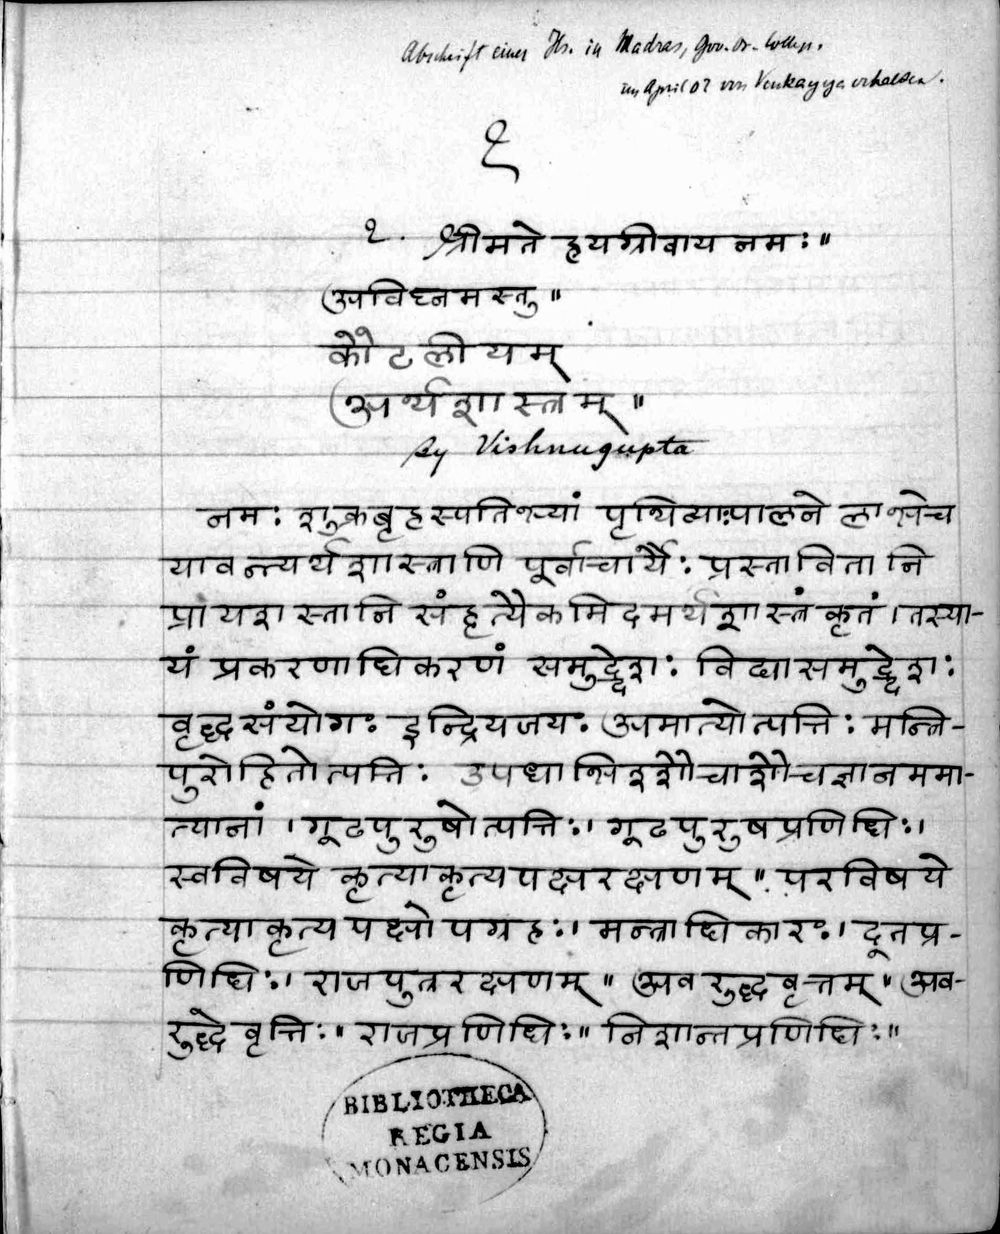 Abschrift einer Hs. in Madras, Gov. Or.
im April 07 von Venkayya erhalten.
१
१. श्रीमते हयग्रीवाय नमः॥
अविघ्नमस्तु॥
कौटलीयम्
अर्थशास्त्रम्॥
By Vishnugupta
नमः शुक्रबृहस्पतिभ्यां पृथिव्याःपालने लाभेच
यावन्त्यर्थशास्त्राणि पूर्वाचार्यैः प्रस्तावितानि
प्रायशस्तानि संहृत्यैकमिदमर्थशास्त्रं कृतं।तस्या-
यं प्रकरणाधिकरणं समुद्देशः विद्यासमुद्देशः
वृद्धसंयोगः इन्द्रियजयः अमात्योत्पत्तिः मन्त्रि-
पुरोहितोत्पत्तिः उपधाभिश्शौचाशौचज्ञानममा-
त्यानां।गूढपुरुषोत्पत्तिः।गूढपुरुषप्रणिधिः।
स्वविषये कृत्याकृत्यपक्षरक्षणम्॥परविषये
कृत्याकृत्यपक्षोपग्रहः।मन्त्राधिकारः।दूतप्र-
णिधिः।राजपुत्ररक्षणम्॥अवरुद्धवृत्तम्॥अव-
रुद्धे वृत्तिः॥राजप्रणिधिः॥निशान्तप्रणिधिः॥
BIBLIOTHECA
REGIA
MONACENSIS